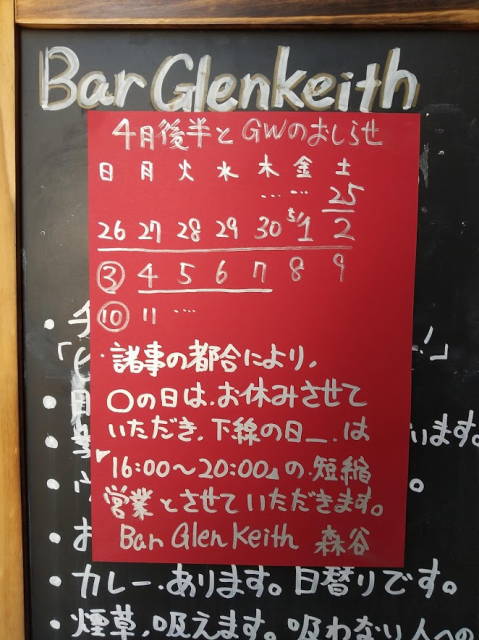 Bar Glenkeith
4月後半とGWのおしらせ
日 月 火 水 木 金 土
… … 25
26 27 28 29 30 5/1 2
③ 4 5 6 7 8 9
⑩ 11 …
・諸事の都合により、
〇の日は、お休みさせて
いただき、下線の日＿、は
「16:00〜20:00」の、短縮
営業とさせていただきます。
Bar Glen Keith 森谷
・カレー、あります。日替りです。
・煙草、吸えます。吸わない人への